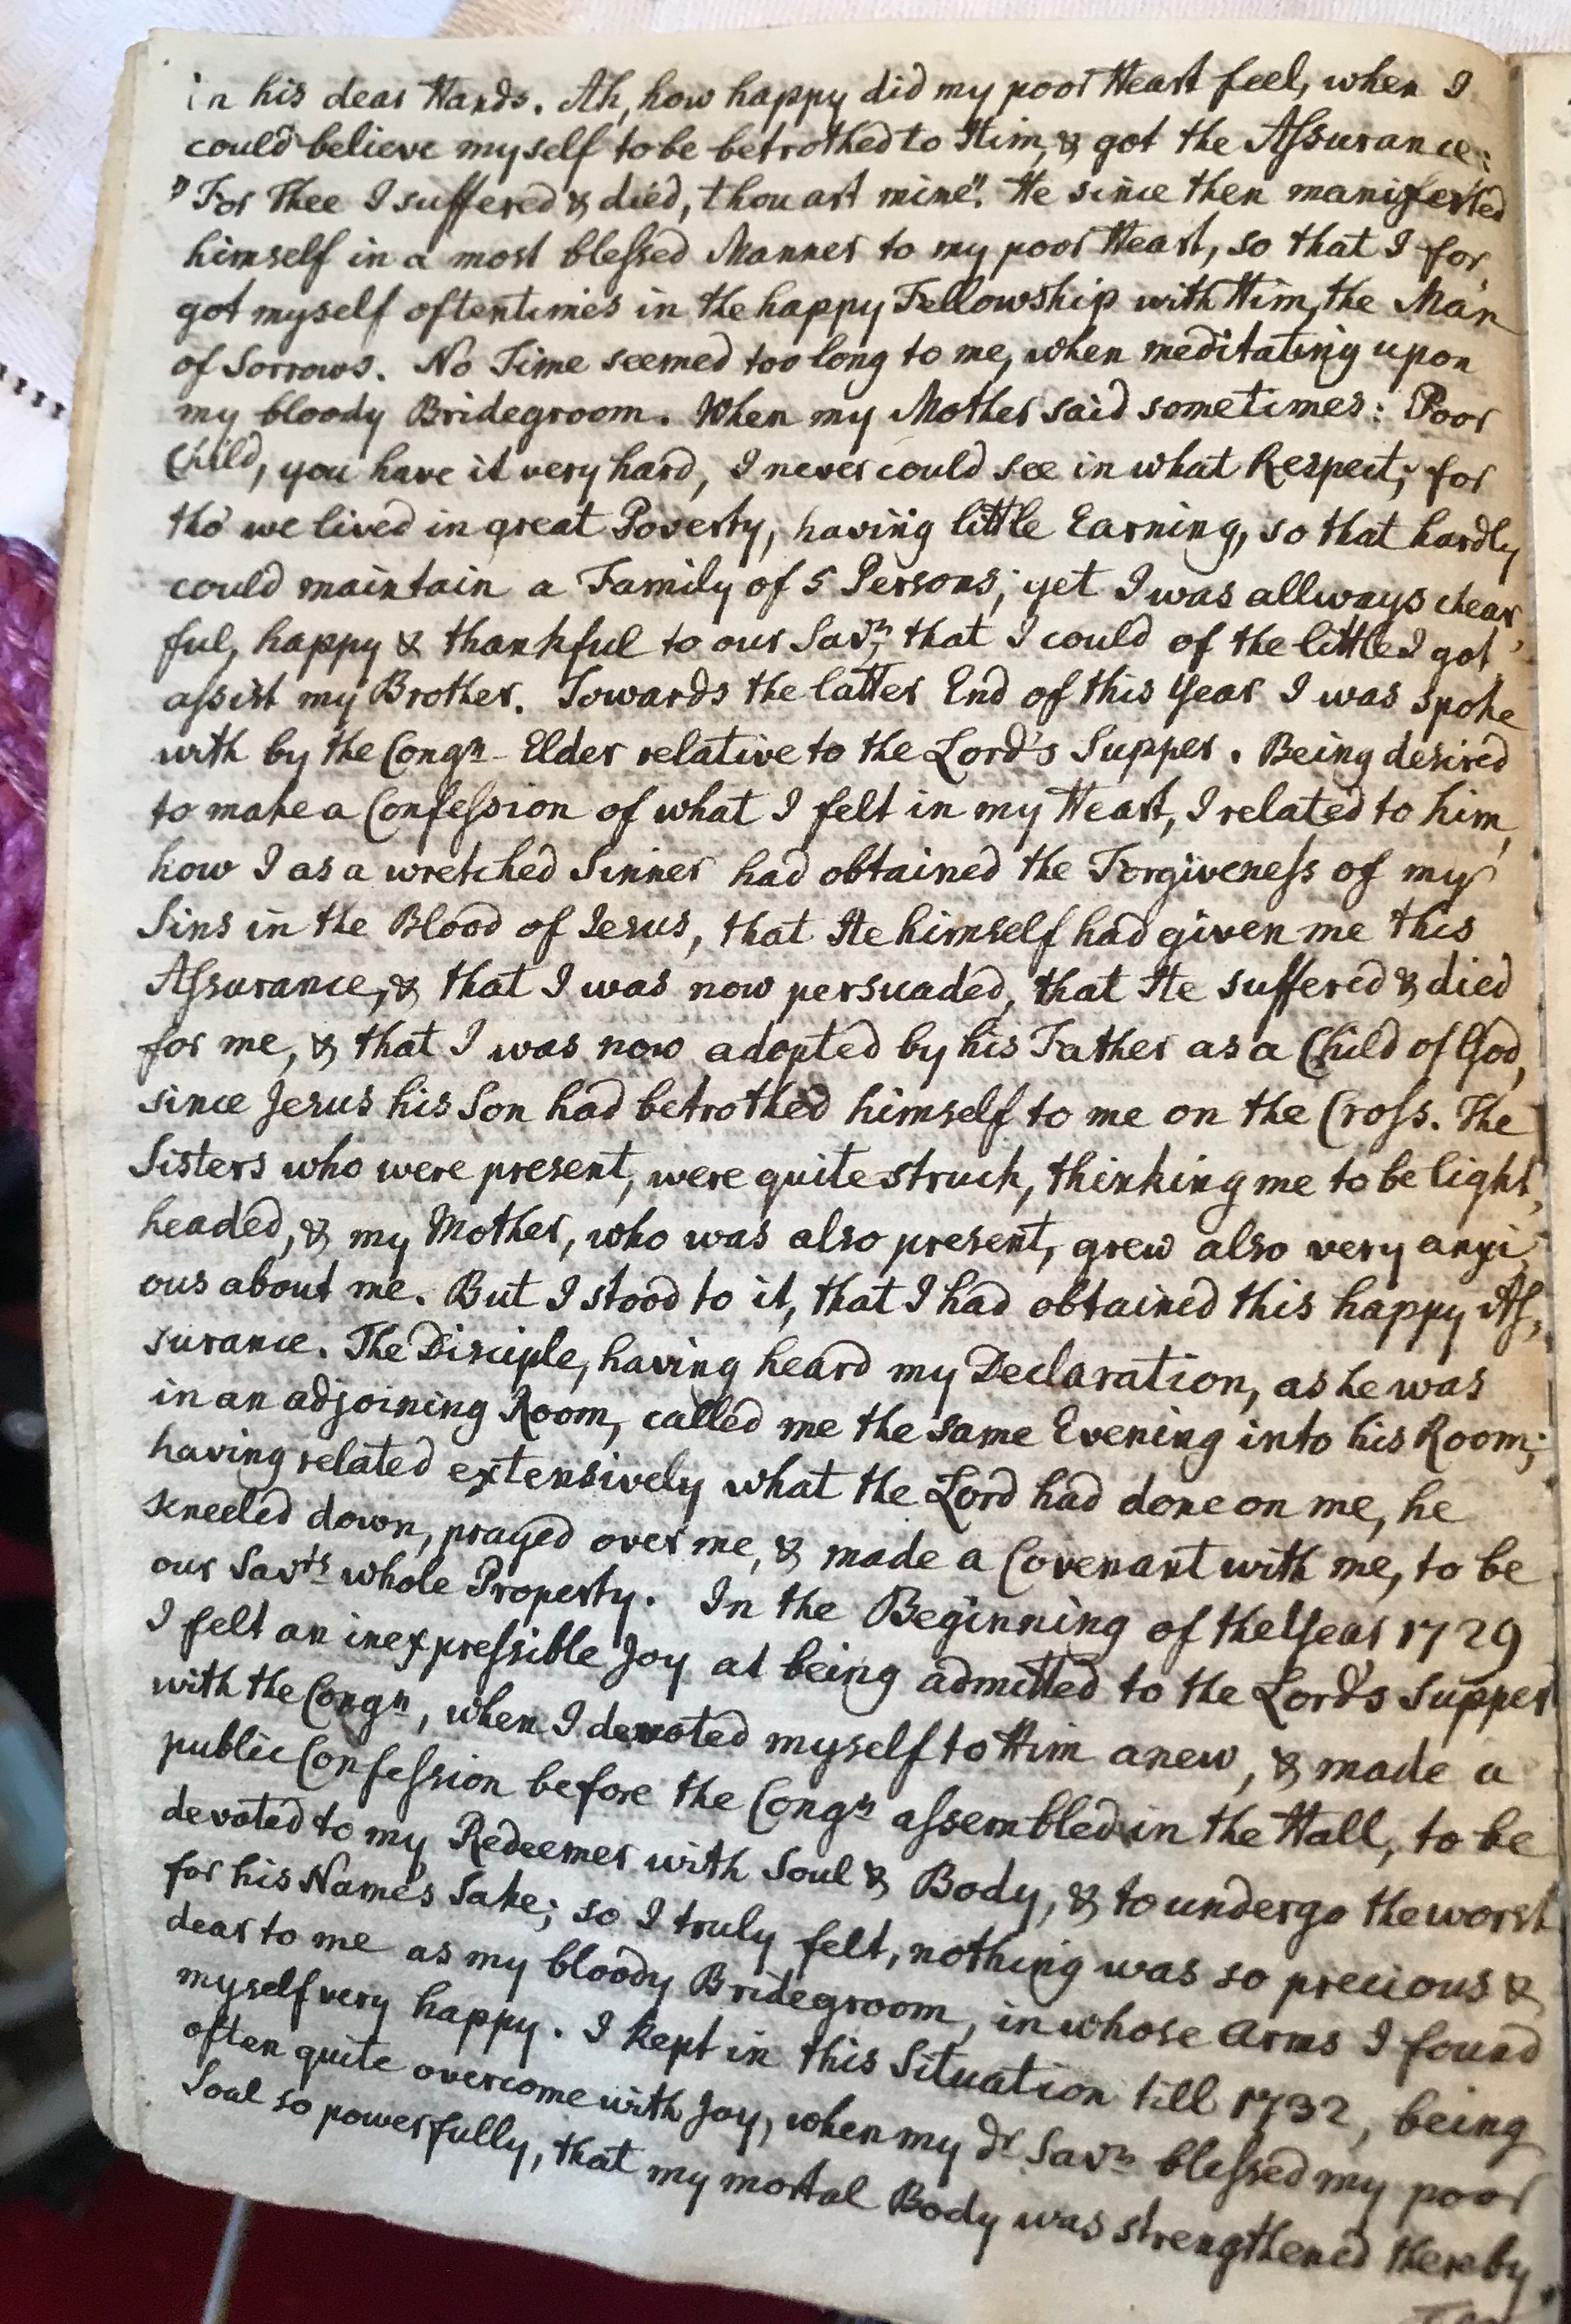 in his dear Hands. Ah, how happy did my poor Heart feel, when I
could believe myself to be betrothed to Him, & got the Aſsurance:
"For Thee I suffered & died, thou art mine". He since then manifested
himself in a most bleſsed Manner to my poor Heart, so that I for,
got myself oftentimes in the happy Fellowship with Him, the Man
of Sorrows. No Time seemed too long to me, when meditating upon
my bloody Bridegroom. When my Mother said sometimes: Poor
Child, you have it very hard, I never could see in what Respect; for
tho' we lived in great Poverty, having little Earning, so that hardly
could maintain a Family of 5 Persons; yet I was allways chear,
ful, happy & thankful to our Savr, that I could of the little I got,
aſsist my Brother. Towards the latter End of this Year I was spoke
with by the Congn- Elder relative to the Lord's Supper. Being desired
to make a Confeſsion of what I felt in my Heart, I related to him,
how I as a wretched Sinner had obtained the Forgiveneſs of my
Sins in the Blood of Jesus, that He himself had given me this
Aſsurance, & that I was now persuaded, that He suffered & died
for me, & that I was now adopted by his Father as a Child of God,
since Jesus his Son had betrothed himself to me on the Croſs. The
Sisters who were present, were quite struck, thinking me to be light,
headed, & my Mother, who was also present, grew also very anxi,
ous about me. But I stood to it, that I had obtained this happy Aſ,
surance. The Disciple, having heard my Declaration, as he was
in an adjoining Room, called me the same Evening into his Room;
having related extensively what the Lord had done on me, he
kneeled down, prayed over me, & made a Covenant with me, to be
our Savrs whole Property. In the Beginning of the Year 1729
I felt an inexpreſsible Joy at being admitted to the Lord's Supper
with the Congn, when I devoted myself to Him anew, & made a
public Confeſsion before the Congn aſsembled in the Hall, to be
devoted to my Redeemer with Soul & Body, & to undergo the worst
for his Name's Sake; so I truly felt, nothing was so precious &
dear to me as my bloody Bridegroom, in whose Arms I found
myself very happy. I kept in this Situation till 1732, being
often quite overcome with Joy, when my dr Savr bleſsed my poor
Soul so powerfully, that my mortal Body was strengthened thereby.